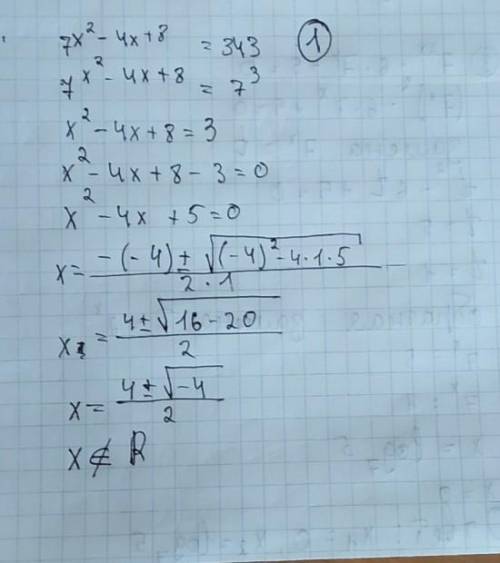 7^{x^2 - 4x + 8} = 343 ①
7^{x^2 - 4x + 8} = 7^3
x^2 - 4x + 8 = 3
x^2 - 4x + 8 - 3 = 0
x^2 - 4x + 5 = 0
x = \frac{-(-4) ± \sqrt{(-4)^2 - 4·1·5}}{2·1}
x = \frac{4 ± \sqrt{16 - 20}}{2}
x = \frac{4 ± \sqrt{-4}}{2}
x ∉ R